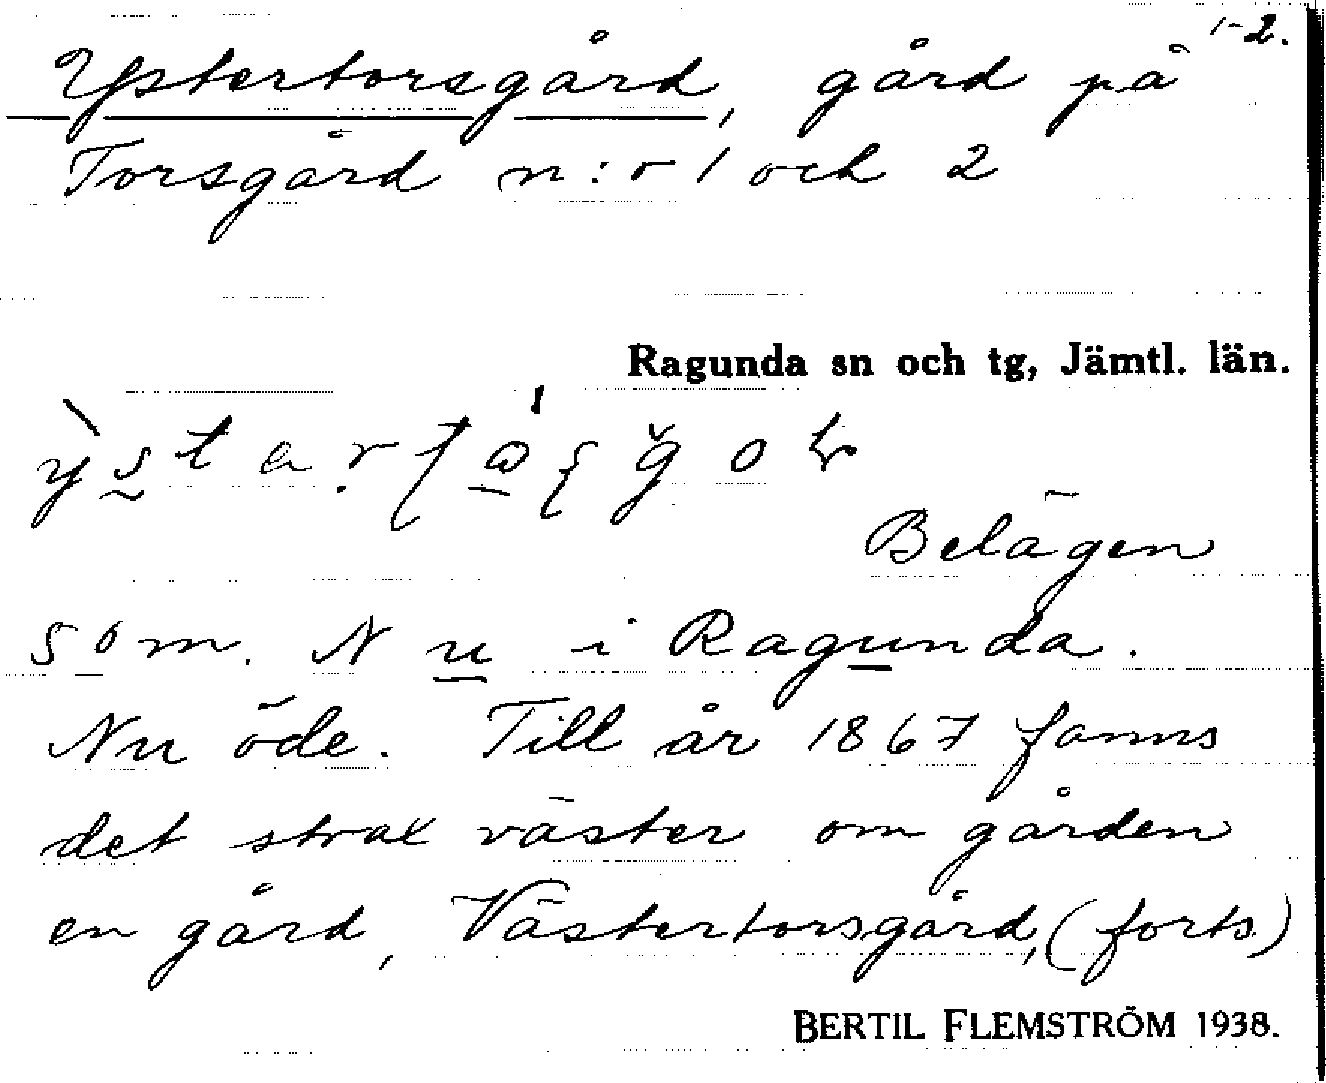 1-2.
Ystertorsgård, gård på
Torsgård n:r 1 och 2
Ragunda sn och tg, Jämtl. län.
Belägen
som. N u i Ragunda.
Nu öde. Till år 1867 fanns
det strax väster om gården
en gård, Västertorsgård, (forts)
BERTIL FLEMSTRÖM 1938.